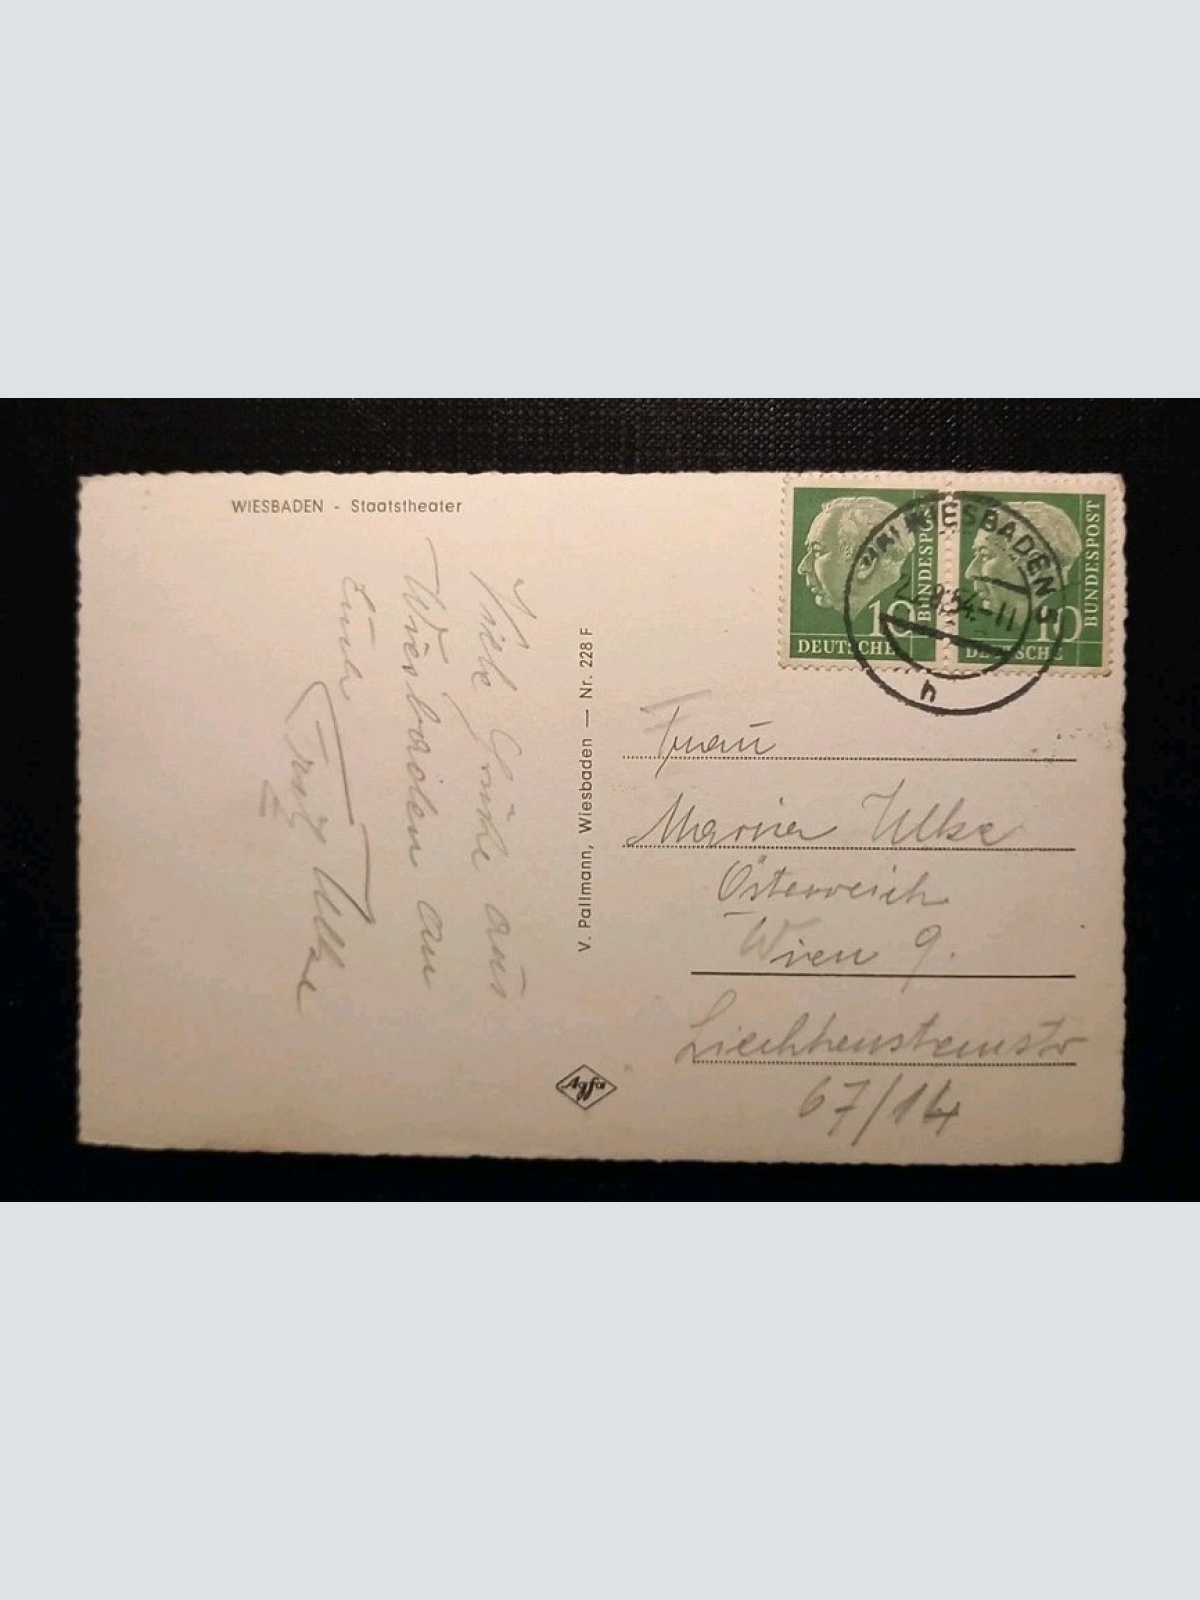 WIESBADEN - Staatstheater
Viele Grüße aus
Wiesbaden an
Euch
Ulbe
V. Pallmann, Wiesbaden — Nr. 228 F
Agfa
10
DEUTSCHE
BUNDESPOST
10
DEUTSCHE
BUNDESPOST
WIESBADEN 5
.9.54.-11
h
Frau
Maria Ulbe
Österreich
Wien 9.
Liechtensteinstr
67/14